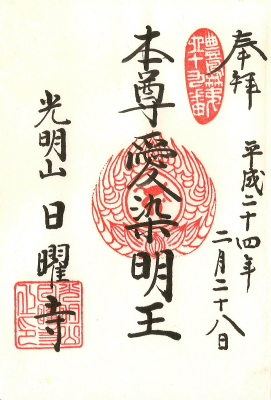 奉拝
平成二十四年
二月二十八日
本尊愛染明王
光明山 日曜寺